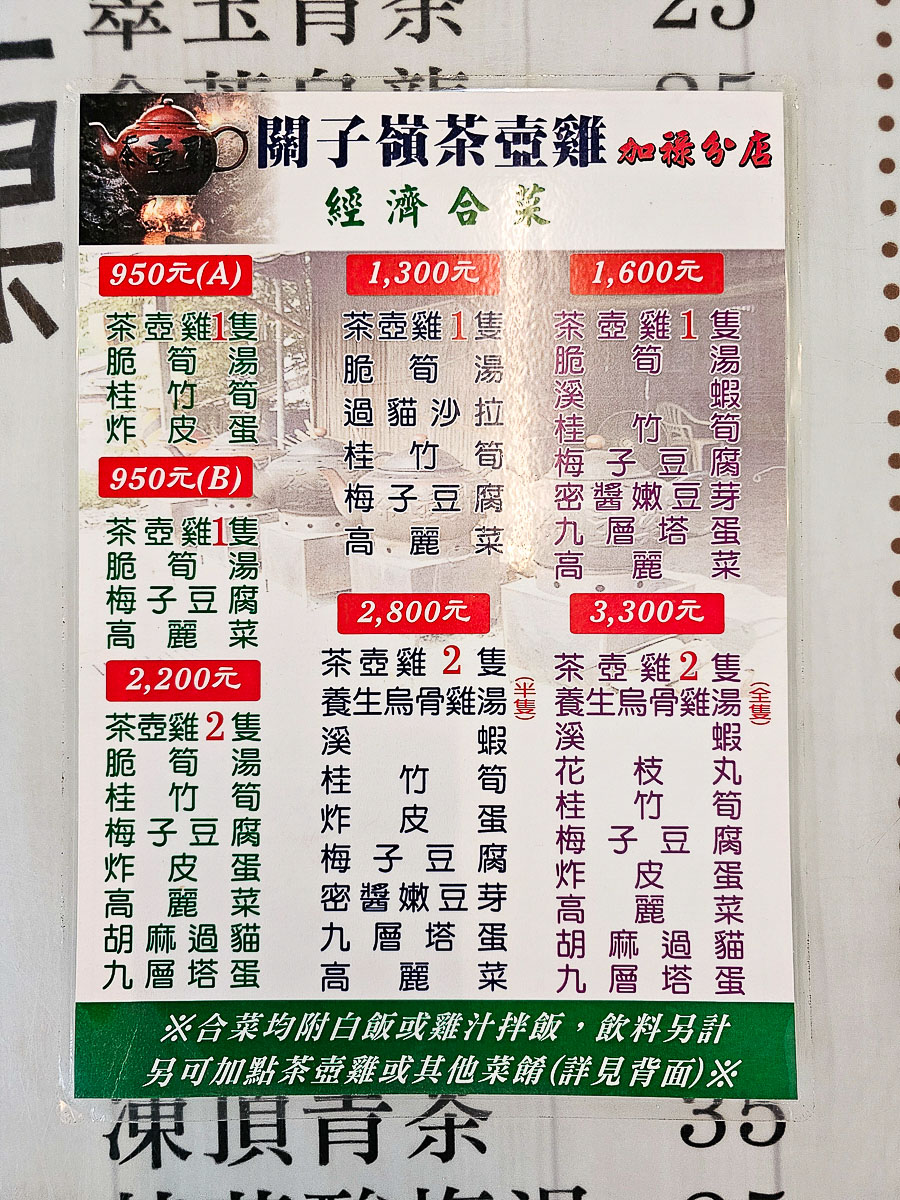 翠玉青茶 25
茶壺雞
關子嶺茶壺雞 加祿分店
經濟合菜
950元(A)
茶壺雞1隻
脆筍湯
桂竹筍
炸皮蛋
950元(B)
茶壺雞1隻
脆筍湯
梅子豆腐
高麗菜
2,200元
茶壺雞2隻
脆筍湯
桂竹筍
梅子豆腐
炸皮蛋
高麗菜
胡麻過貓
九層塔蛋
1,300元
茶壺雞1隻
脆筍湯
過貓沙拉
桂竹筍
梅子豆腐
高麗菜
2,800元
茶壺雞2隻
養生烏骨雞湯(半隻)
溪蝦
桂竹筍
炸皮蛋
梅子豆腐
密醬嫩豆芽
九層塔蛋
高麗菜
1,600元
茶壺雞1隻
脆筍湯
溪蝦
桂竹筍
梅子豆腐
密醬嫩豆芽
九層塔蛋
高麗菜
3,300元
茶壺雞2隻
養生烏骨雞湯(全隻)
溪蝦
花枝丸
桂竹筍
梅子豆腐
炸皮蛋
高麗菜
胡麻過貓
九層塔蛋
※合菜均附白飯或雞汁拌飯，飲料另計
另可加點茶壺雞或其他菜餚(詳見背面)※
凍頂青茶 35